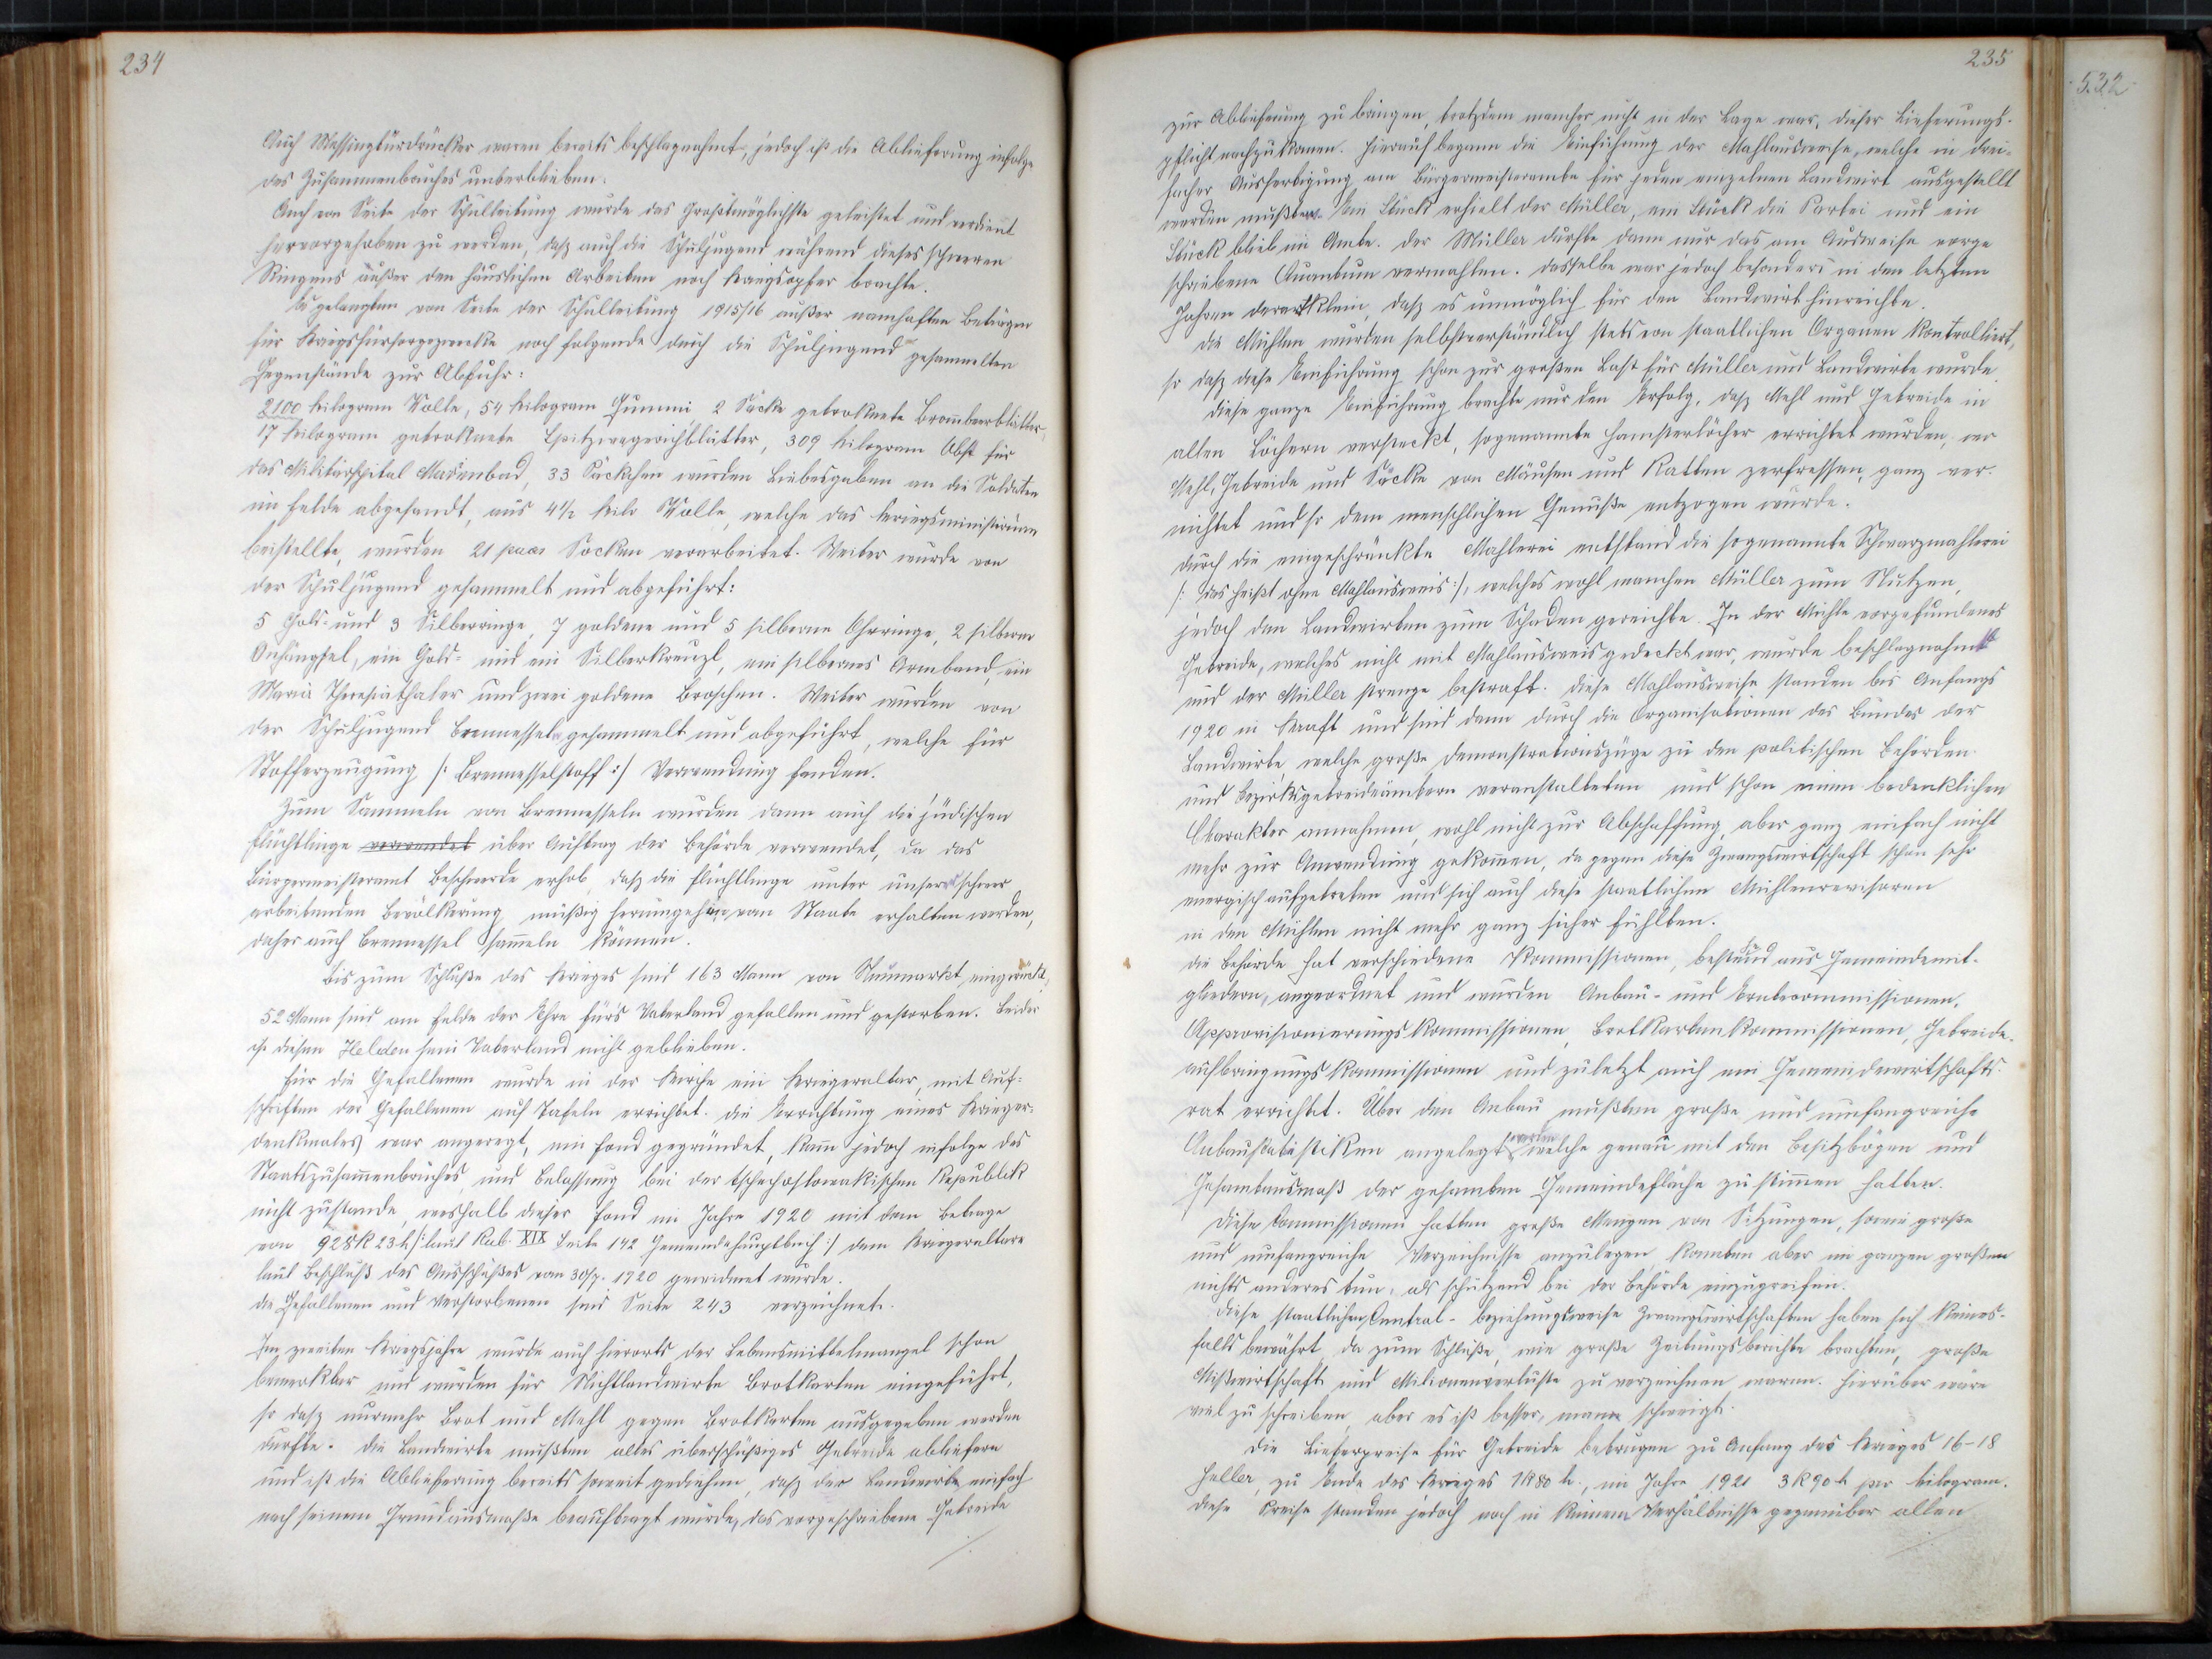 234
Auch Messingtürdrücker waren bereits beschlagnahmt, jedoch ist die Ablieferung infolge
des Zusammenbruches unterblieben.
Auch von Seite der Schulleitung wurde das Großtmöglichste geleistet und verdient
hervorgehoben zu werden, daß auch die Schuljugend während dieses schweren
Ringens außer den häuslichen Arbeiten noch Kriegsopfer brachte.
Es gelangten von Seite der Schulleitung 1915/16 außer namhaften Beträgen
für Kriegsfürsorgezwecke noch folgende durch die Schuljugend gesammelten
Gegenstände zur Abfuhr:
2100 Kilogram Wolle, 54 Kilogram Gummi 2 Säcke getroknete Brombeerblätter,
17 Kilogram getroknete Spitzwegerichblätter, 309 Kilogram Obst für
das Militärspital Marienbad, 33 Päckchen wurden Liebesgaben an die Soldaten
im Felde abgesandt, aus 4½ Kilo Wolle, welche das Kriegsministerium
beistellte, wurden 21 paar Socken verarbeitet. Weiter wurde von
der Schuljugend gesammelt und abgeführt:
5 Gold- und 3 Silberringe, 7 goldene und 5 silberne Ohrringe, 2 silberne
Anhängsel, ein Gold- und ein Silberkreuzl, ein silbernes Armband, ein
Maria Theresiathaler und zwei goldene Broschen. Weiter wurden von
der Schuljugend Brennesseln gesammelt und abgeführt, welche für
Stofferzeugung /: Brennesselstoff :/ Verwendung fanden.
Zum Sammeln von Brennesseln wurden dann auch die jüdischen
Flüchtlinge verwendet über Auftrag der Behörde verwendet, da das
Bürgermeisteramt Beschwerde erhob, daß die Flüchtlinge unter unserer schwer
arbeitenden Bevölkerung müßig herumgehen, vom Staate erhalten werden,
daher auch Brennessel sam̄eln können.
Bis zum Schluße des Krieges sind 163 Mann von Neumarkt eingerückt,
52 Mann sind am Felde der Ehre fürs Vaterland gefallen und gestorben. Leider
ist diesen Helden sein Vaterland nicht geblieben.
Für die Gefallenen wurde in der Kirche ein Kriegeraltar, mit Auf-
schriften der Gefallenen auf Tafeln errichtet. Die Errichtung eines Krieger-
denkmales war angeregt, ein Fond gegründet, kam̄ jedoch infolge des
Staatszusam̄enbruches und Belassung bei der tschechoslowakischen Republik
nicht zustande, weshalb dieser Fond im Jahre 1920 mit dem Betrage
von 928 K 23 h /: laut Rub. XIX Seite 142 Gemeindehauptbuch :/ dem Kriegeraltare
laut Beschluß des Ausschußes vom 30/7. 1920 gewidmet wurde.
Die Gefallenen und Verstorbenen sind Seite 243 verzeichnet.
Im zweiten Kriegsjahre wurde auch hierorts der Lebensmittelmangel schon
bemerkbar und wurden für Nichtlandwirte Brotkarten eingeführt,
so daß nurmehr Brot und Mehl gegen Brotkarten ausgegeben werden
durfte. Die Landwirte mußten alles überschüßiges Getreide abliefern
und ist die Ablieferung bereits soweit gediehen, daß der Landwirt einfach
nach seinem Grundausmaße beauftragt wurde, das vorgeschriebene Getreide
235
zur Ablieferung zu bringen, trotzdem mancher nicht in der Lage war, dieser Lieferungs-
pflicht nachzukommen. Hierauf begann die Einführung der Mahlausweise, welche in drei-
facher Ausfertigung am Bürgermeisteramte für jeden einzelnen Landwirt ausgestellt
werden mußten. Ein Stück erhielt der Müller, ein Stück die Partei und ein
Stück blieb im Amte. Der Müller durfte dann nur das am Ausweise vorge
schriebene Quantum vermahlen. Dasselbe war jedoch besonders in den letzten
Jahren derart klein, daß es unmöglich für den Landwirt hinreichte.
Die Mühlen wurden selbstverständlich stets von staatlichen Organen kontrolliert,
so daß diese Einführung schon zur großen Last für Müller und Landwirte wurde.
Diese ganze Einführung brachte nur den Erfolg, daß Mehl und Getreide in
allen Löchern versteckt, sogenannte Hamsterlöcher errichtet wurden, wo
Mehl, Getreide und Säcke von Mäusen und Ratten zerfressen, ganz ver-
nichtet und so dem menschlichen Genuße entzogen wurde.
Durch die eingeschränkte Mahlerei entstand die sogenannte Schwarzmahlerei
/: das heißt ohne Mahlausweis :/, welches wohl manchen Müller zum Nutzen,
jedoch den Landwirten zum Schaden gereichte. In der Mühle vorgefundenes
Getreide, welches nicht mit Mahlausweis gedeckt war, wurde beschlagnahmt
und der Müller strenge bestraft. Diese Mahlausweise standen bis Anfangs
1920 in Kraft und sind dann durch die Organisationen des Bundes der
Landwirte, welche große Demonstrationszüge zu den politischen Behörden
und Bezirksgetreideämtern veranstalteten und schon einen bedenklichen
Charakter annahmen, wohl nicht zur Abschaffung, aber ganz einfach nicht
mehr zur Anwendung gekom̄en, da gegen diese Zwangswirtschaft schon sehr
energisch aufgetreten und sich auch diese staatlichen Mühlenrevisoren
in den Mühlen nicht mehr ganz sicher fühlten.
Die Behörde hat verschiedene Kommissionen, bestehend aus Gemeindemit-
gliedern, angeordnet und wurden Anbau- und Erntecommissionen,
Approvisionierungskommissionen, Brotkartenkommissionen, Getreide-
aufbringungskommissionen und zuletzt auch ein Gemeindewirtschafts-
rat errichtet. Über den Anbau mußten große und umfangreiche
Anbaustatistiken angelegt werden welche genau mit den Besitzbögen und
Gesamtausmaß der gesamten Gemeindefläche zu stim̄en hatten.
Diese Commissionen hatten große Mengen von Sitzungen, sowie große
und umfangreiche Verzeichnisse anzulegen, konnten aber im ganzen großen
nichts anderes tun, als schützend bei der Behörde einzugreifen.
Diese staatlichen Central- beziehungsweise Zwangswirtschaften haben sich keines-
falls bewährt, da zum Schluße, wie große Zeitungsberichte brachten, große
Mißwirtschaft und Milionenverluste zu verzeichnen waren. Hierüber wäre
viel zu schreiben, aber es ist besser, mann schweigt.
Die Lieferpreise für Getreide betrugen zu Anfang des Krieges 16-18
Heller, zu Ende des Krieges 1 K 80 h., im Jahre 1921 3 K 90 h per Kilogram.
Diese Preise standen jedoch noch in keinem Verhältnisse gegenüber allen
532